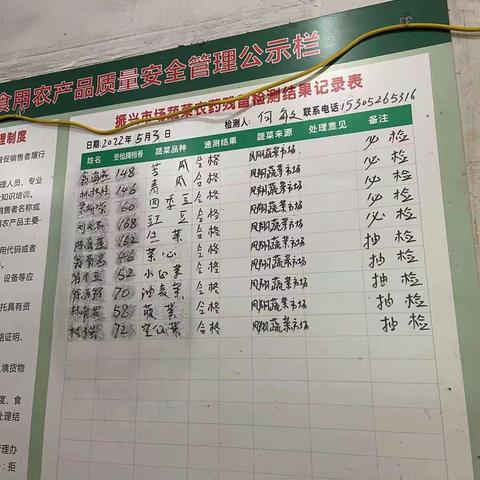 食用农产品质量安全管理公示栏
振兴市场蔬菜农药残留检测结果记录表
日期:2022年5月3日 检测人: 何敏 联系电话:15305265316
姓名 受检摊档号 蔬菜品种 速测结果 蔬菜来源 处理意见 备注
148 苦瓜 合格 凤翔蔬菜市场 必检
146 青瓜 合格 凤翔蔬菜市场 必检
160 四季豆 合格 凤翔蔬菜市场 必检
168 豇豆 合格 凤翔蔬菜市场 必检
152 生菜 合格 凤翔蔬菜市场 抽检
46 菜心 合格 凤翔蔬菜市场 抽检
152 小白菜 合格 凤翔蔬菜市场 抽检
70 油麦菜 合格 凤翔蔬菜市场 抽检
58 菠菜 合格 凤翔蔬菜市场 抽检
72 空心菜 合格 凤翔蔬菜市场 抽检
理制度
者促销售者履行
理人员、专业
知识培训。
销售者名称或
用农产品主要
用代码或者
设备等应
托具有资
格证明、
境货物
度、食
处理结
管理办
：拒